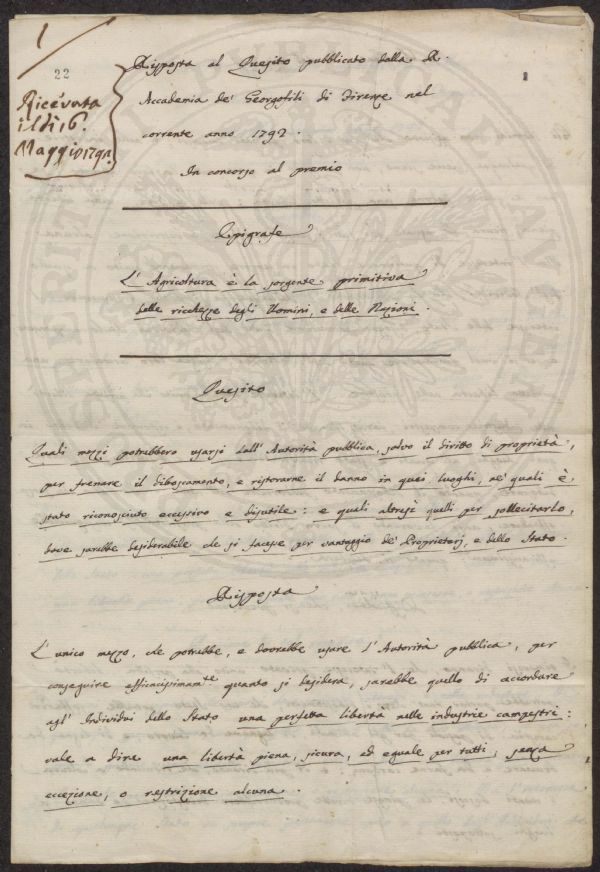 22
Ricevuta
il dì 16.
Maggio 1792.
1
Risposta al Quesito pubblicato dalla R.
Accademia de' Georgofili di Firenze nel
corrente anno 1792.
In concorso al premio
Epigrafe
L'Agricoltura è la sorgente primitiva
delle ricchezze degli Uomini, e delle Nazioni.
Quesito
Quali mezzi potrebbero usarsi dall'Autorità pubblica, salvo il diritto di proprietà,
per frenare il diboscamento, e ristorarne il danno in quei luoghi, ne' quali è
stato riconosciuto eccessivo e disutile: e quali altresì quelli per sollecitarlo,
dove sarebbe desiderabile che si facesse per vantaggio de' Proprietarj, e dello Stato.
Risposta
L'unico mezzo, che potrebbe, e dovrebbe usare l'Autorità pubblica, per
conseguire efficacissimam.te quanto si desidera, sarebbe quello di accordare
agl'Individui dello Stato una perfetta libertà nelle industrie campestri:
vale a dire una libertà piena, sicura, ed eguale per tutti, senza
eccezione, o restrizione alcuna.